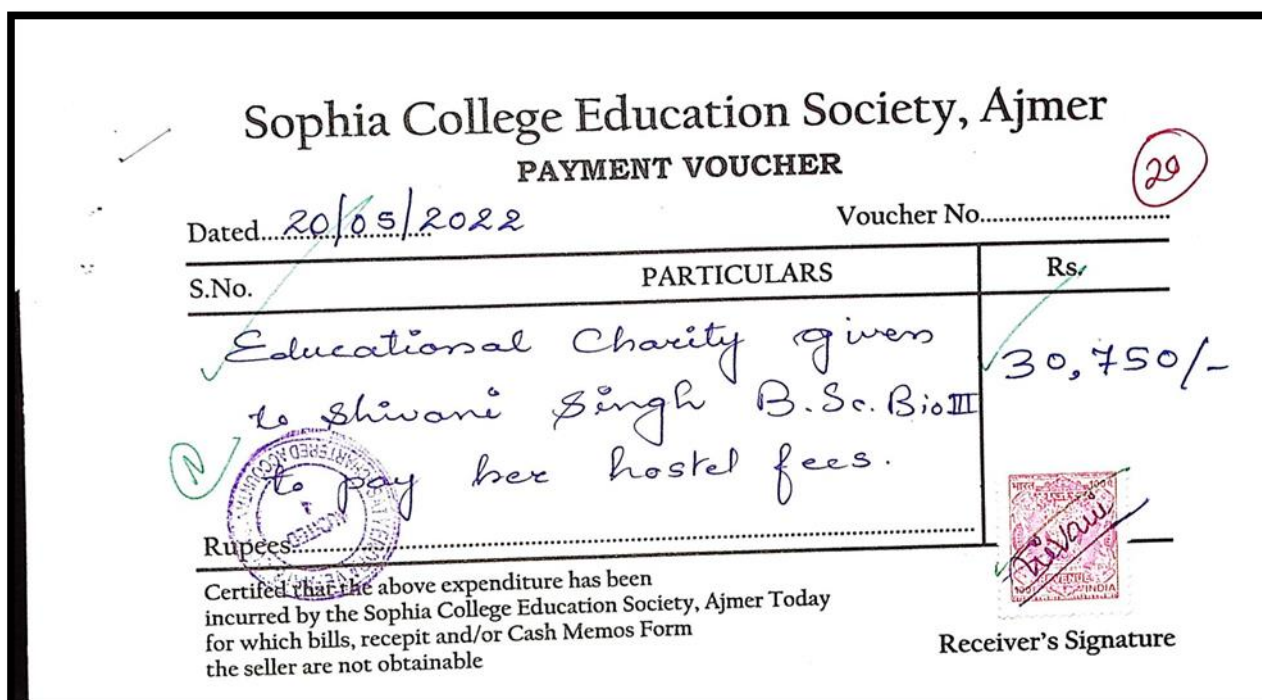 Sophia College Education Society, Ajmer
PAYMENT VOUCHER
20
Dated...20/05/2022
Voucher No.................................
S.No. PARTICULARS Rs.
Educational Charity given 30,750/-
to Shivani Singh B.Sc. Bio III
to pay her hostel fees.
N
CHARTERED ACCOUNTANTS
AUDITED
Rupees...............................................................
भारत
REVENUE
INDIA
Shivani
Certifed that the above expenditure has been
incurred by the Sophia College Education Society, Ajmer Today
for which bills, recepit and/or Cash Memos Form
the seller are not obtainable
Receiver's Signature